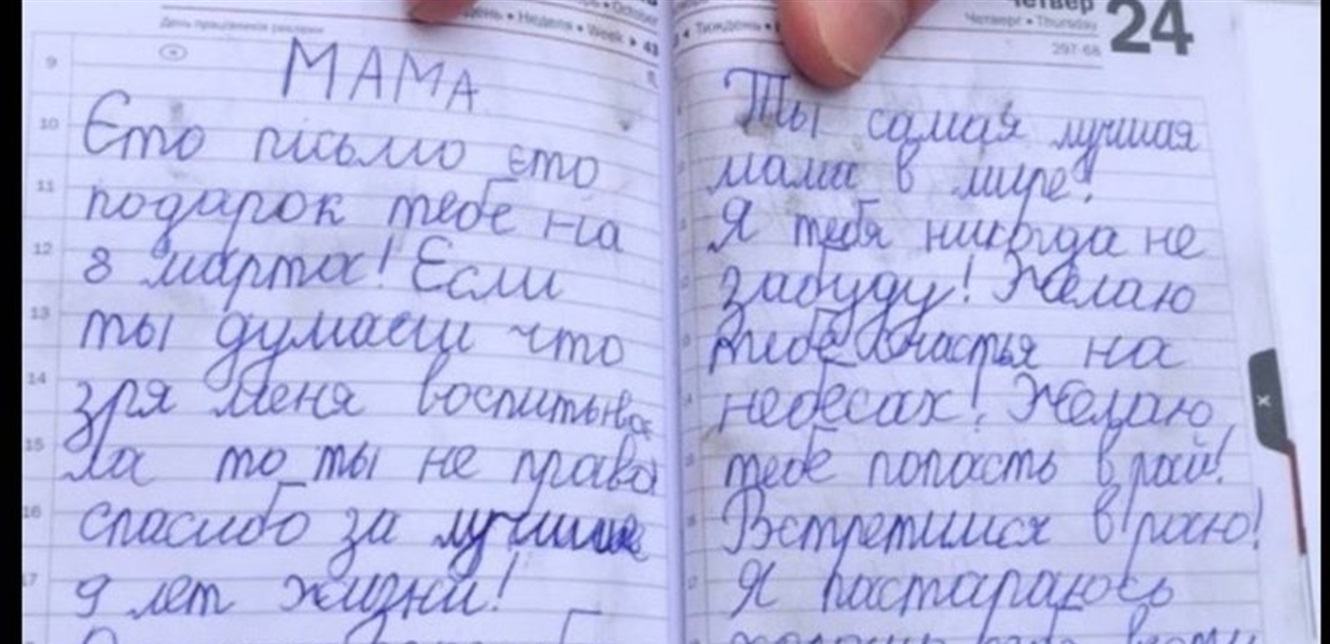 October
День працівника реклами
• Неделя • Week ▸ 43
МАМА
Єто пісьмо єто
подарок тебе на
8 марта! Если
ты думаеш что
зря меня воспитыва
ла то ты не права
спасибо за лучшие
9 лет жизни!
9
10
11
12
13
14
15
16
17
• Тиждень •
Четвер
Четверг • Thursday
24
297-68
Ты самая лучшая
мама в мире!
Я тебя никогда не
забуду! Желаю
тебе счастья на
небесах! Желаю
тебе попасть в рай!
Встретимся в раю!
Я пастараюсь
x